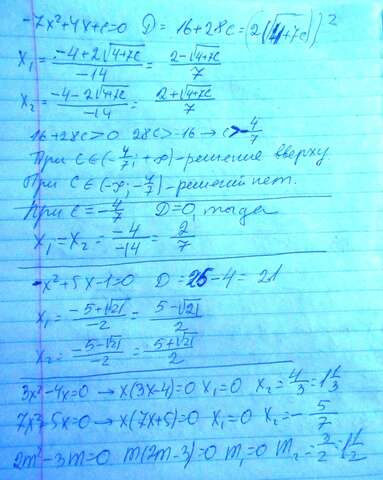 -7x²+4x+c=0 D = 16+28c=(2(√4+7c))²
x₁ = (-4+2√4+7c)/-14 = (2-√4+7c)/7
x₂ = (-4-2√4+7c)/-14 = (2+√4+7c)/7
16+28c>0 28c>-16 → c>-4/7
При C∈(-4/7; +∞) - решение вверху
При C∈(-∞; -4/7) - решений нет.
При c=-4/7 D=0, тогда
x₁=x₂= -4/-14 = 2/7
-x²+5x-1=0 D=25-4=21
x₁= (-5+√21)/-2 = (5-√21)/2
x₂= (-5-√21)/-2 = (5+√21)/2
3x²-4x=0 → x(3x-4)=0 x₁=0 x₂=4/3=1 1/3
7x²-5x=0 → x(7x+5)=0 x₁=0 x₂=-5/7
2m²-3m=0 m(2m-3)=0 m₁=0 m₂=3/2=1 1/2